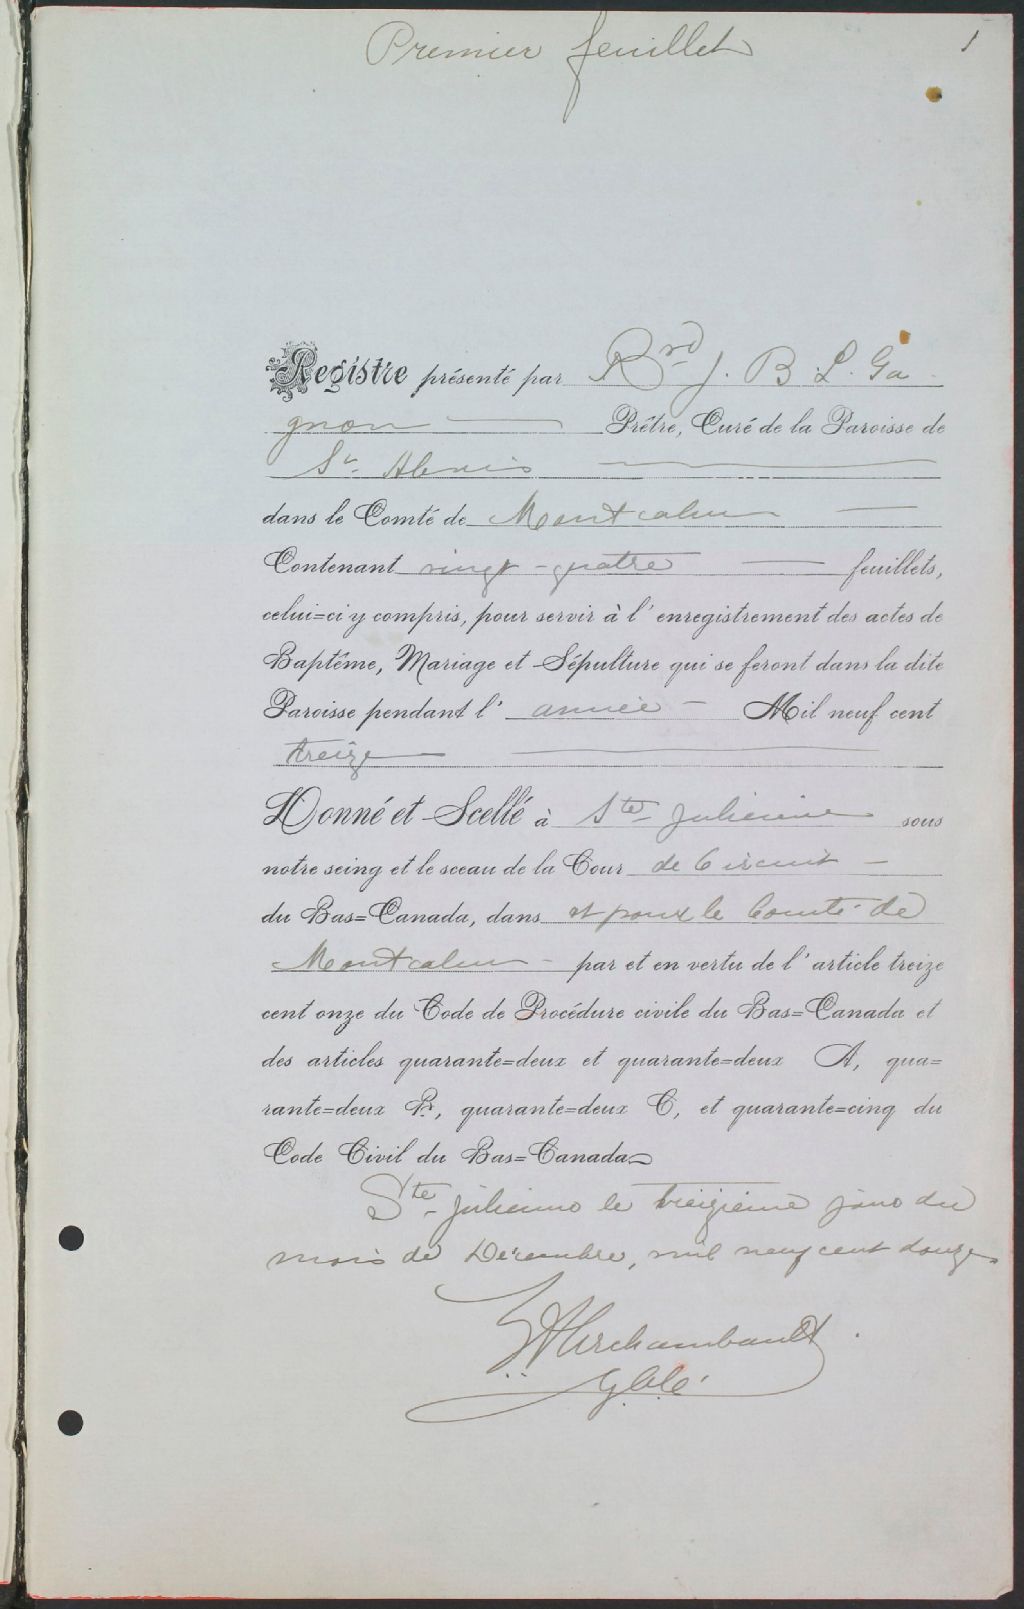 Premier feuillet
1
Registre présenté par Rrd J. B. L. Ga
gnon Prêtre, Curé de la Paroisse de
St. Alexis
dans le Comté de Montcalm
Contenant vingt-quatre feuillets,
celui=ci y compris, pour servir à l'enregistrement des actes de
Baptême, Mariage et Sépulture qui se feront dans la dite
Paroisse pendant l'année Mil neuf cent
treize
Donné et Scellé à Ste Julienne sous
notre seing et le sceau de la Cour de Circuit
du Bas=Canada, dans et pour le Comté de
Montcalm par et en vertu de l'article treize
cent onze du Code de Procédure civile du Bas=Canada et
des articles quarante=deux et quarante=deux A, qua=
rante=deux B, quarante=deux C, et quarante=cinq du
Code Civil du Bas=Canada
Ste Julienne le treizième jour du
mois de Décembre, mil neuf cent douze
Archambault